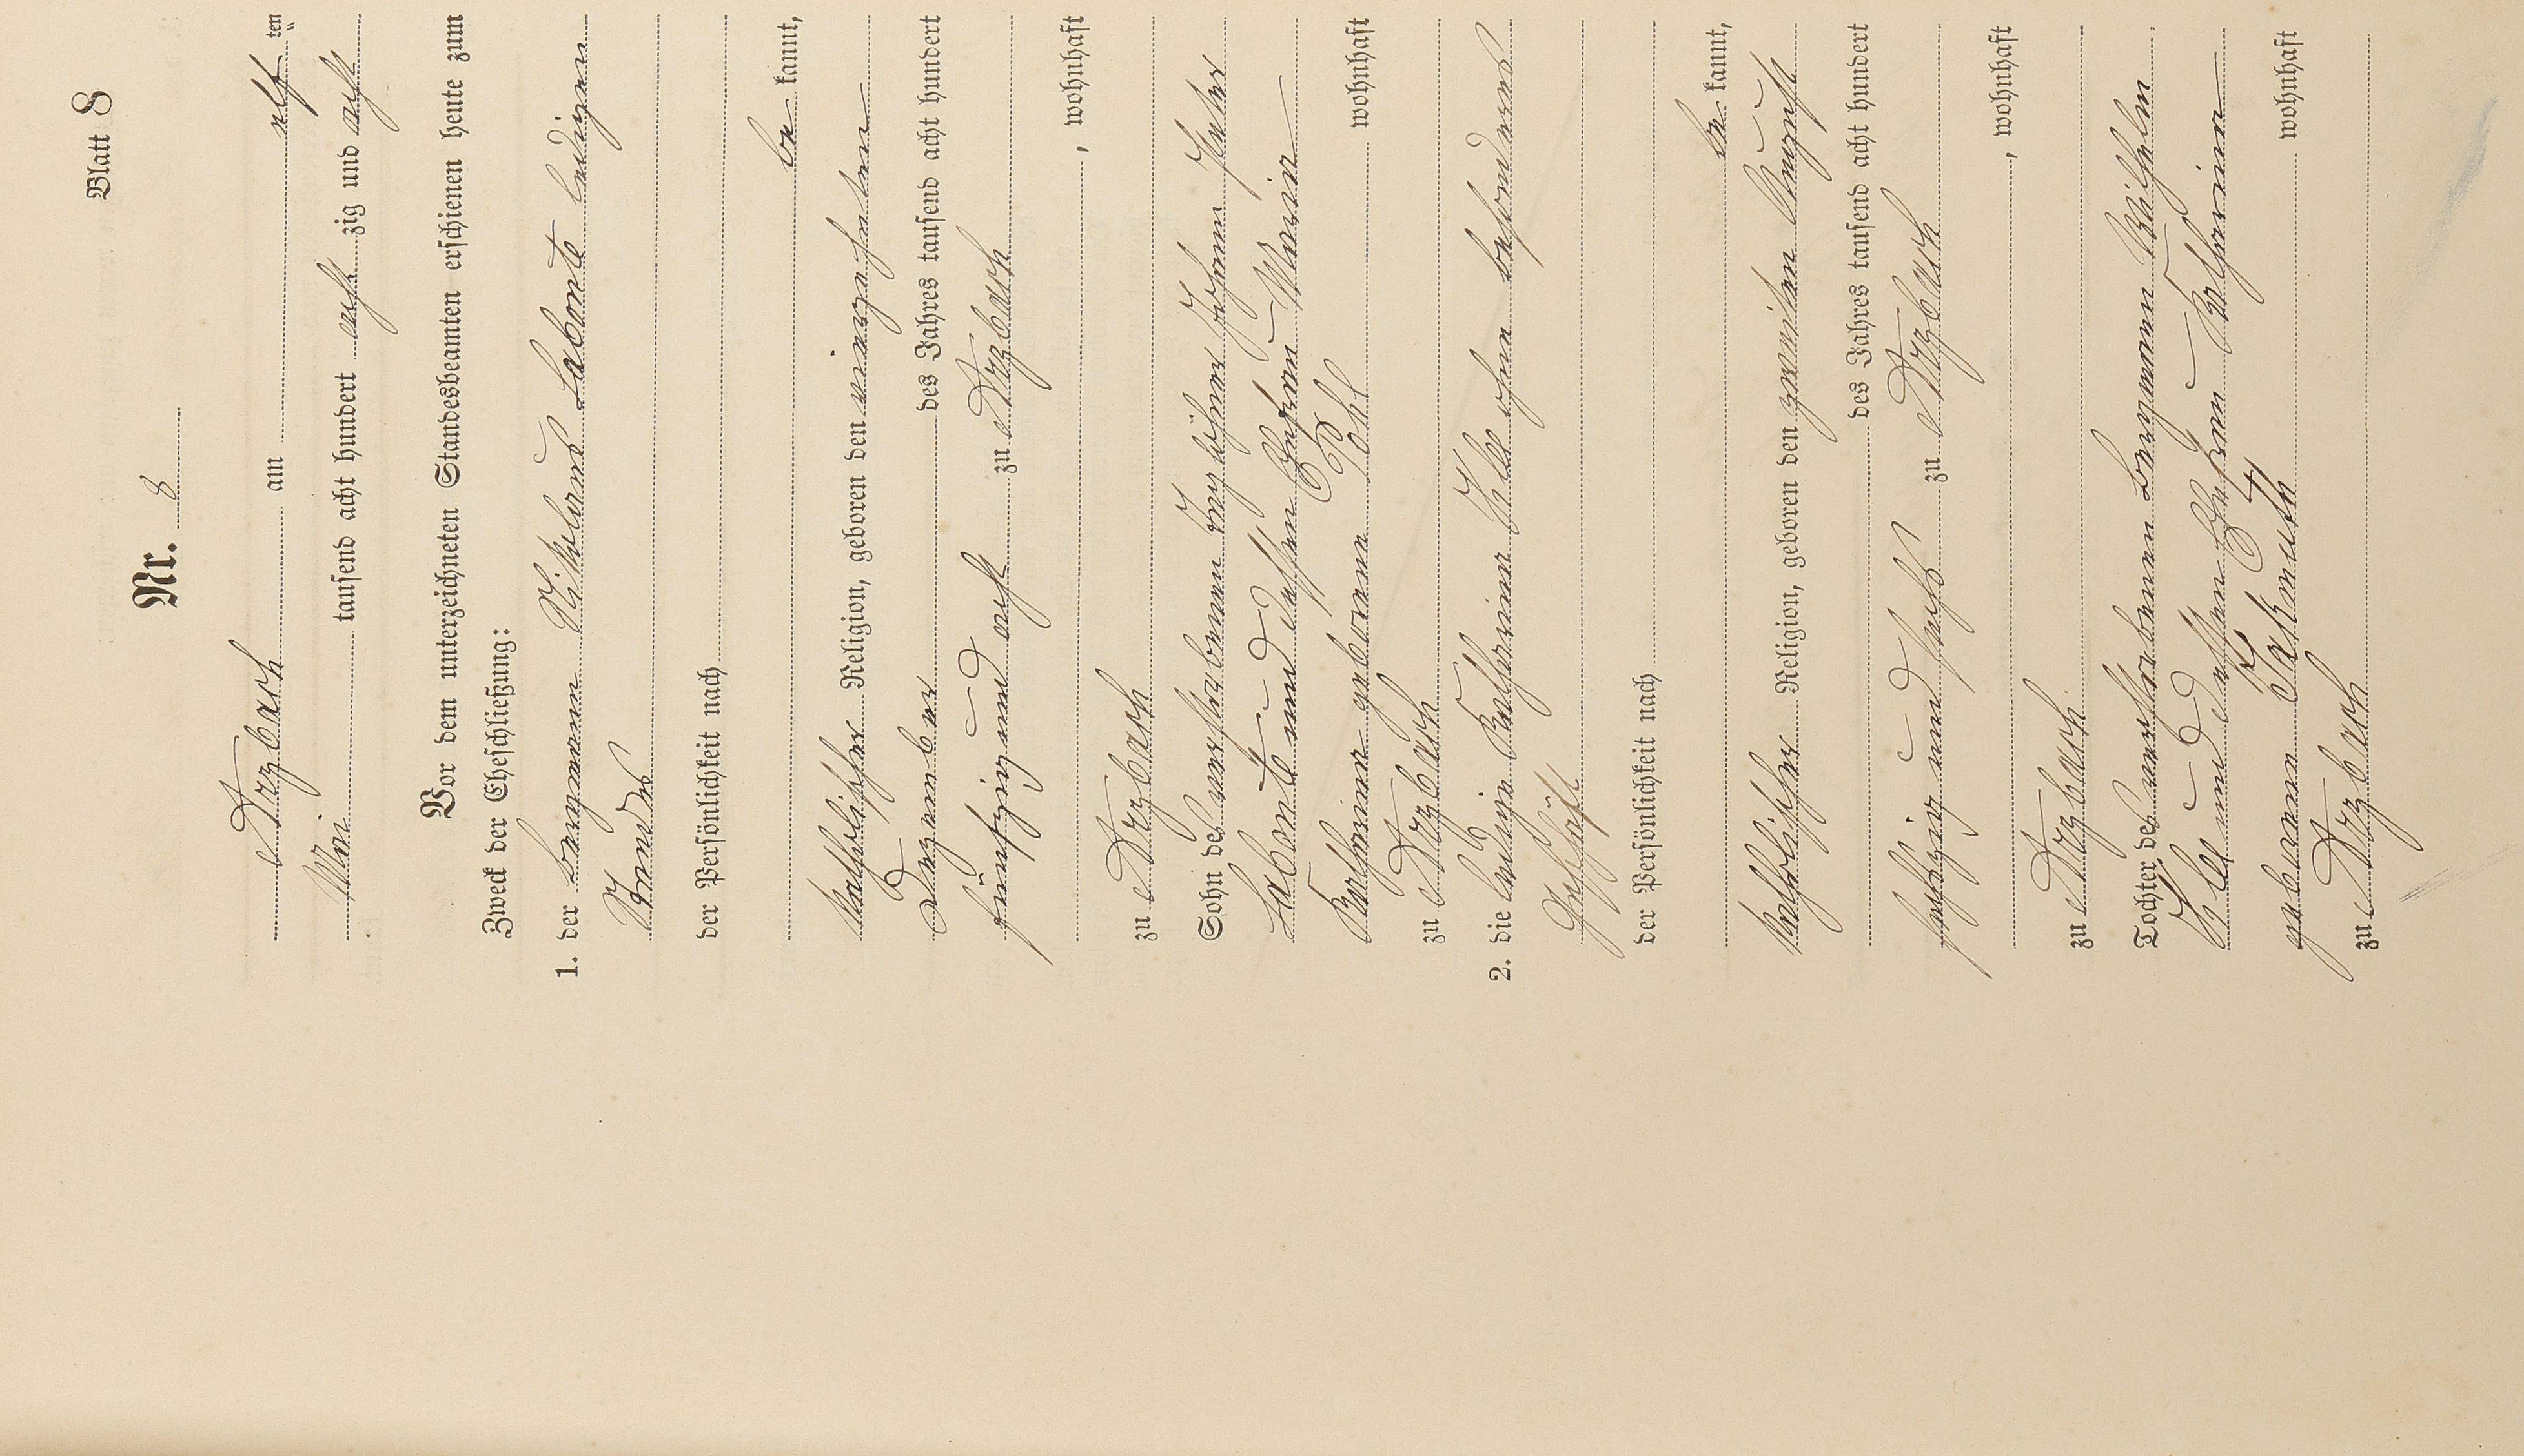 Blatt 8
Nr. 8
Arzbach am elf ten
Mai tausend acht hundert acht zig und acht
Vor dem unterzeichneten Standesbeamten erschienen heute zum
Zweck der Eheschließung:
1. der Bergmann Nikolaus Labonte ledigen
Standes
der Persönlichkeit nach
be kannt,
katholischer Religion, geboren den vierzehnten
Dezember des Jahres tausend acht hundert
fünfzig und acht zu Arzbach
, wohnhaft
zu Arzbach
Sohn des verstorbenen Tagelöhners Johann Peter
Labonte und dessen Ehefrau Maria
Katharina geborene Pohl
wohnhaft
zu Arzbach
2. die ledige Katharina Klee ohne besonderes
Geschäft
der Persönlichkeit nach
be kannt,
katholischer Religion, geboren den zweiten August
des Jahres tausend acht hundert
sechszig und sechs zu Arzbach
, wohnhaft
zu Arzbach
Tochter des verstorbenen Bergmann Wilhelm
Klee und dessen Ehefrau Katharina
geborene
wohnhaft
zu Arzbach